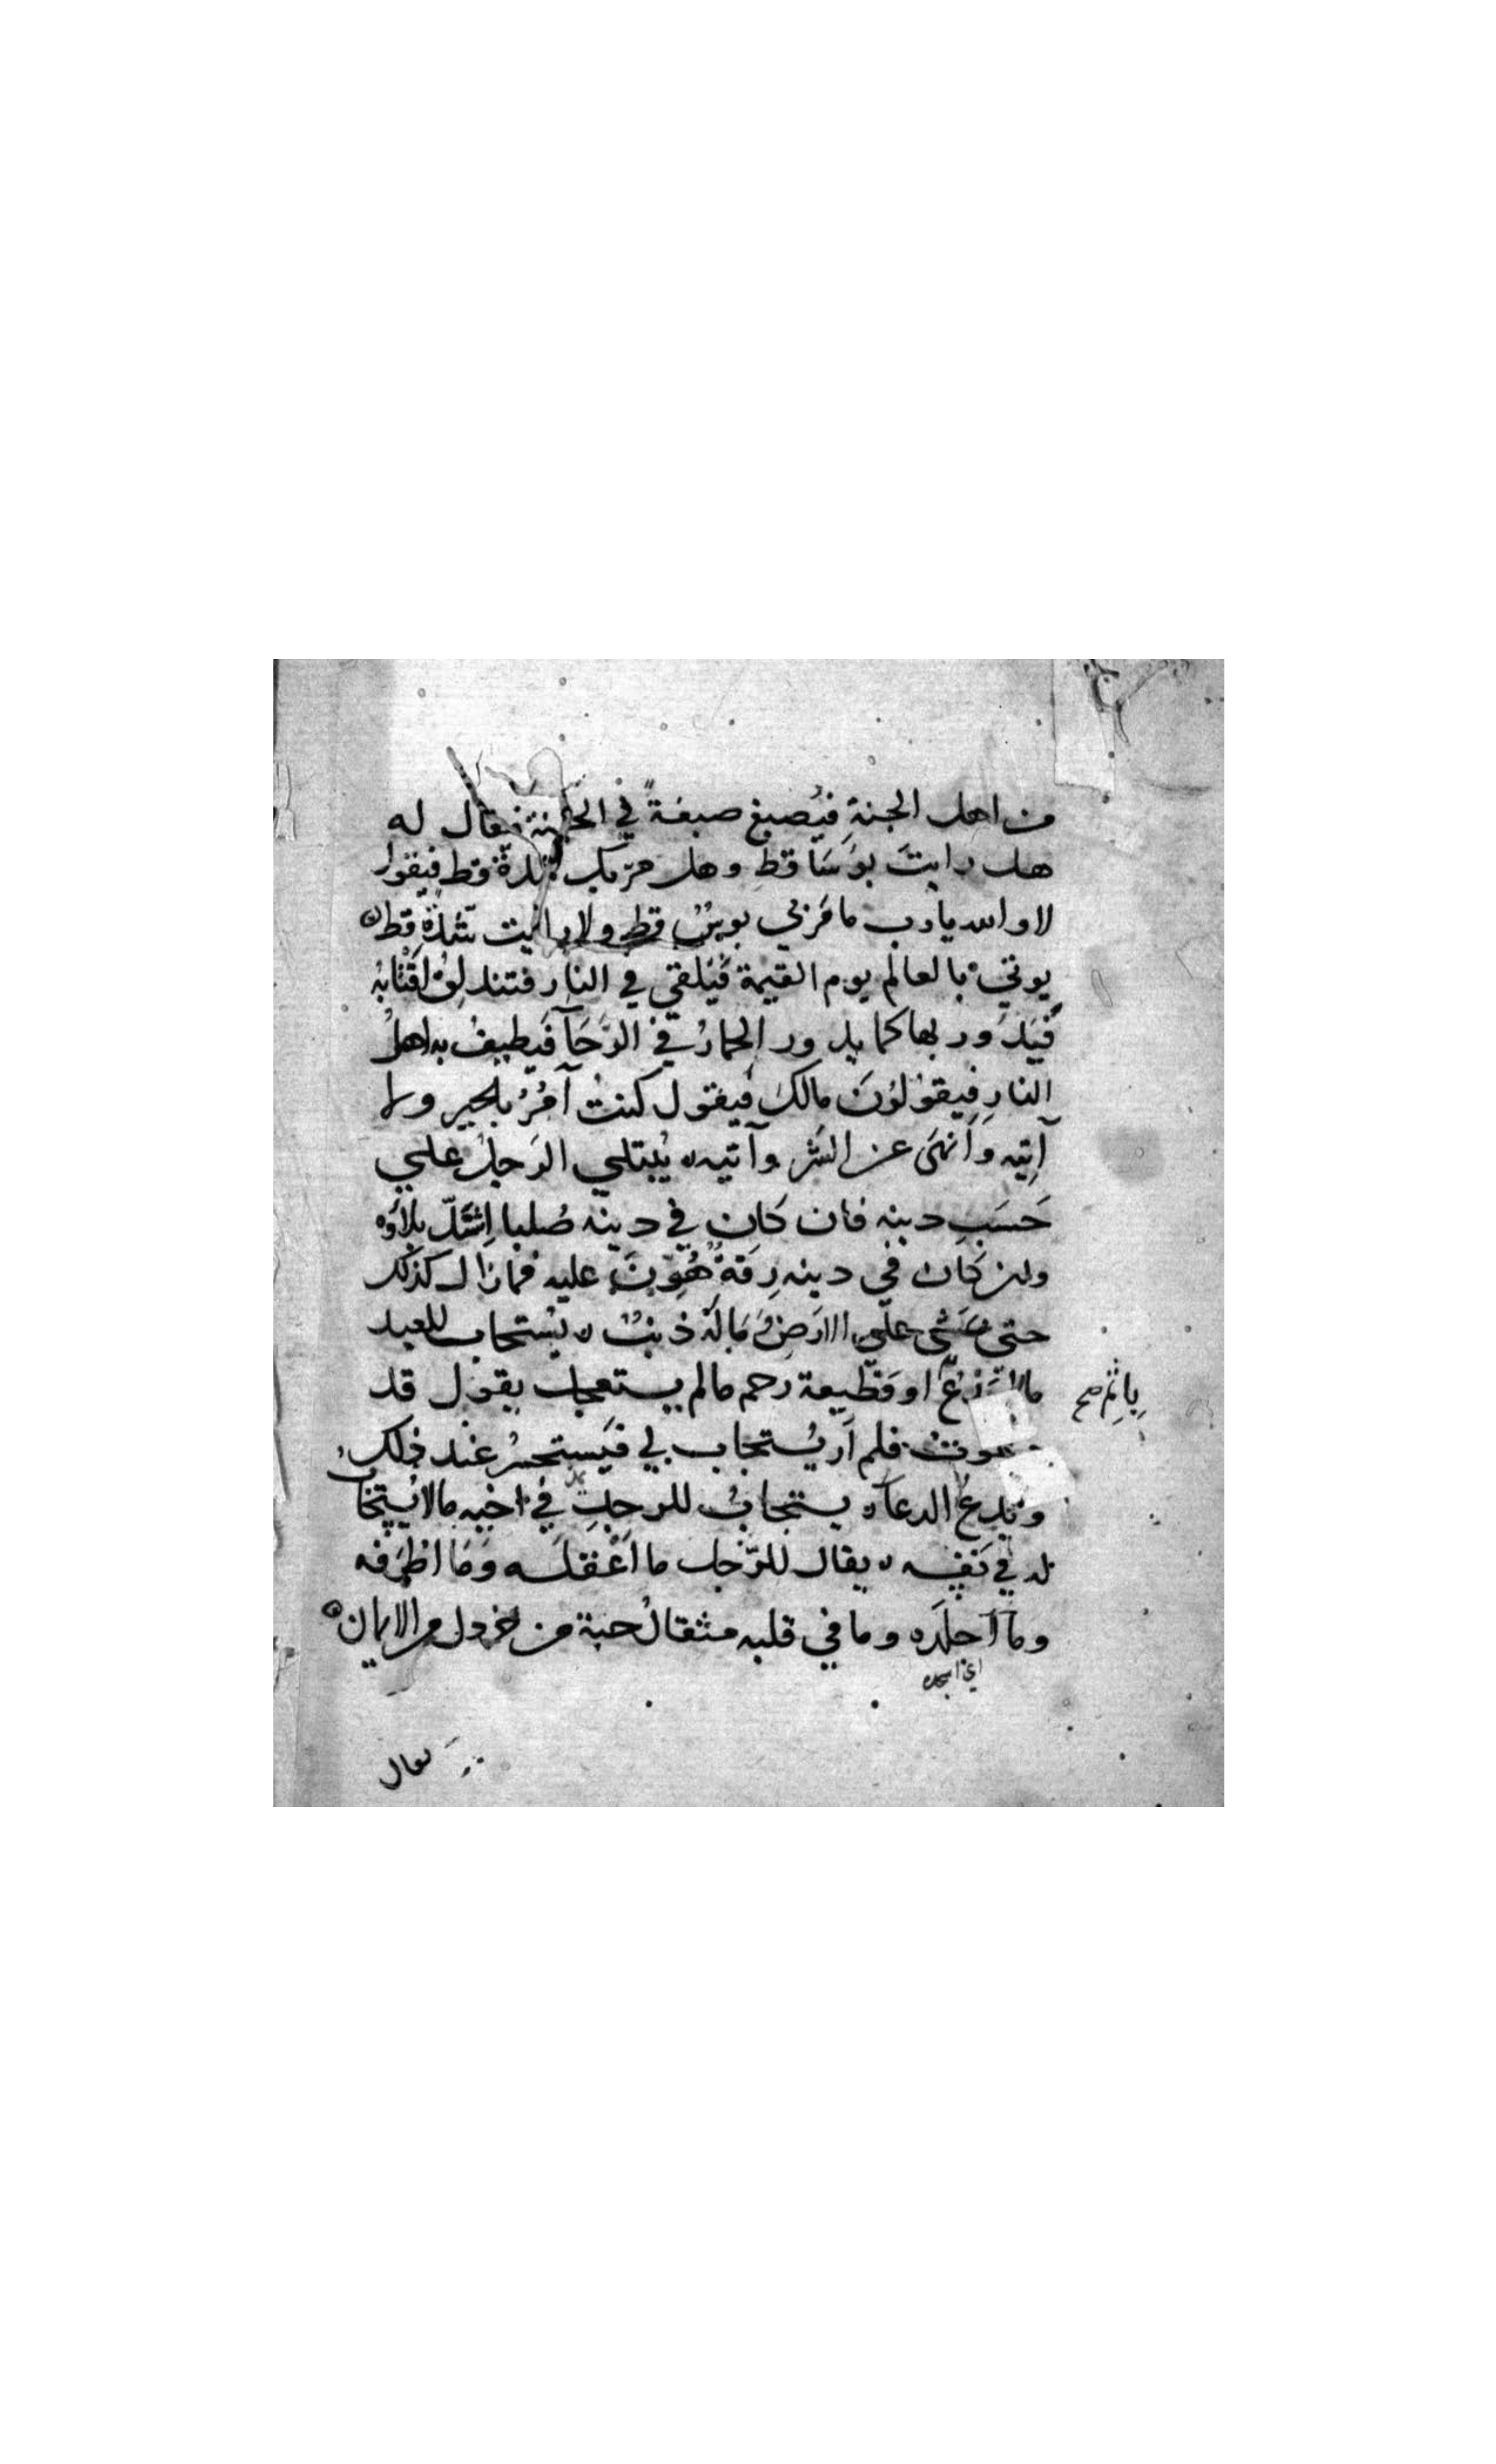 من اهل الجنةِ فيُصبغ صبغةً في الجنة فيقال له
هل رايتَ بوسَا قط وهل مرّ بك شدةٌ قط فيقول
لا والله يا رب ما مَر بي بوسٌ قط ولا رايت شدةً قط
يوتي بالعالم يوم القيمة فيُلقي في النار فتندلِقُ اقتابُه
فيَدُور بها كما يدور الحمارُ في الرَحَآ فيطيفُ به اهلُ
النارِ فيقولُونَ مالك فيقول كنتُ آمُرُ بالخير ولا
آتِيه وَأنهَى عن الشر وآتيه يُبتلي الرَجلُ علي
حَسَبِ دينه فان كَان في دينه صُلبا اشتدّ بلاوُه
وان كان في دينه رِقةٌ هُوِّنَ عليه فما زال كذلك
حتى يمشي علي الارَضِ وَمَا لَهُ ذنبٌ يُستجاب للعبد
ما لم يَدْعُ او قطيعة رحم ما لم يستعجل يقول قد
باثمٍ صح
دعوتُ فلم اَر يُستجاب لي فيَستحسرُ عند ذلك
ويَدعُ الدعآ يستجابُ للرجلِ في اخيه ما لا يُستجابُ
له في نَفسِه يقال للرّجل ما اَعْقلَه وَمَا اظرَفه
وما اَجلَدَه وما في قلبه مثقالُ حبة من خردل من الايمان
يقال